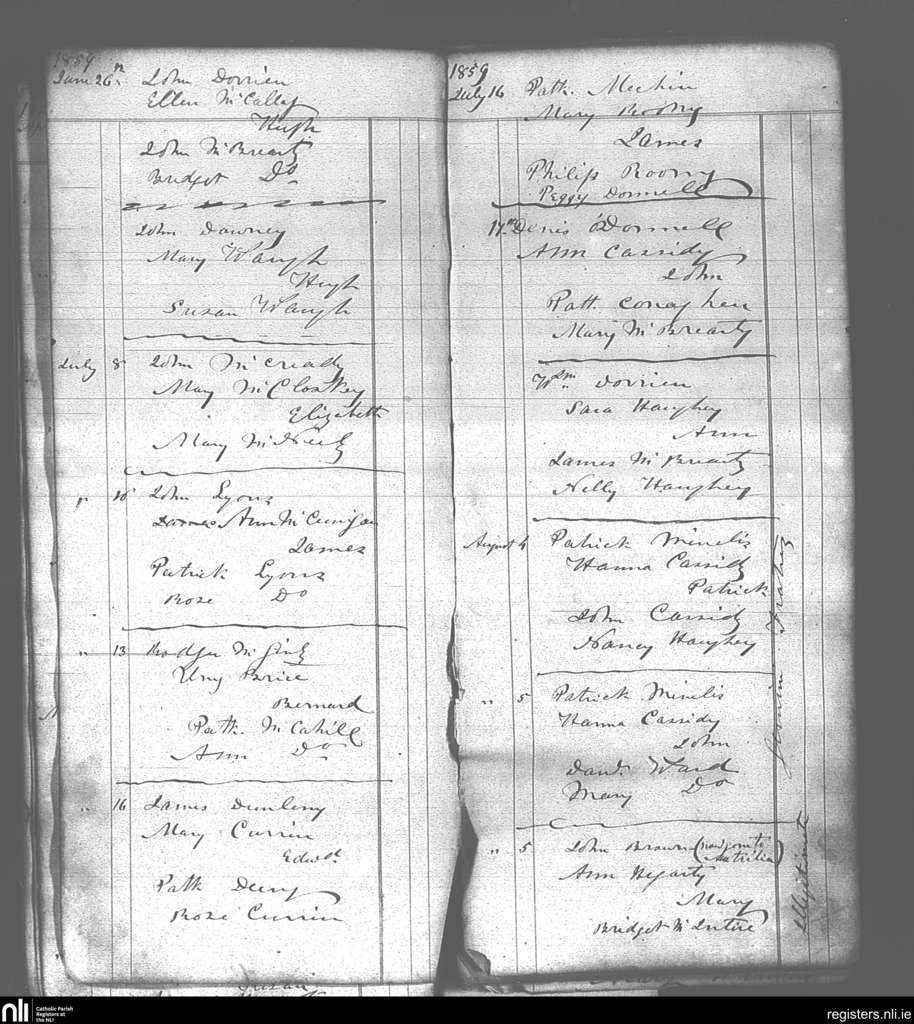 1859
June 26th John Dorrien
Ellen McCallog
Hugh
John McBrearty
Bridget Do
John Downey
Mary Waugh
Hugh
Susan Waugh
July 8 John McCready
Mary McCloskey
Elizabeth
Mary McNeely
" 10 John Lyons
Ann McCunigan
James
Patrick Lyons
Rose Do
" 13 Rodger McGinty
Uny Brice
Bernard
Patk. McCahill
Ann Do
" 16 James Dunleny
Mary Currin
Edwd
Patk Deeny
Rose Currin
1859
July 16 Patk. Meehin
Mary Roony
James
Philip Roony
Peggy Donnell
17th Denis O'Donnell
Ann Cassidy
John
Patk. Conaghen
Mary McBrearty
Wm Dorrien
Sara Haughey
Ann
James McBrearty
Nelly Haughey
August 4 Patrick Minelis
Hanna Cassidy
Patrick
John Cassidy
Nancy Haughey
" 5 Patrick Minelis
Hanna Cassidy
John
Dand. Ward
Mary Do
" 5 John Brown (now gone to
Autrilia)
Ann Hegarty
Mary
Bridget McIntire
Gemini Fratres
Illegitimate
Susan
nli Catholic Parish
Registers at
the NLI
registers.nli.ie